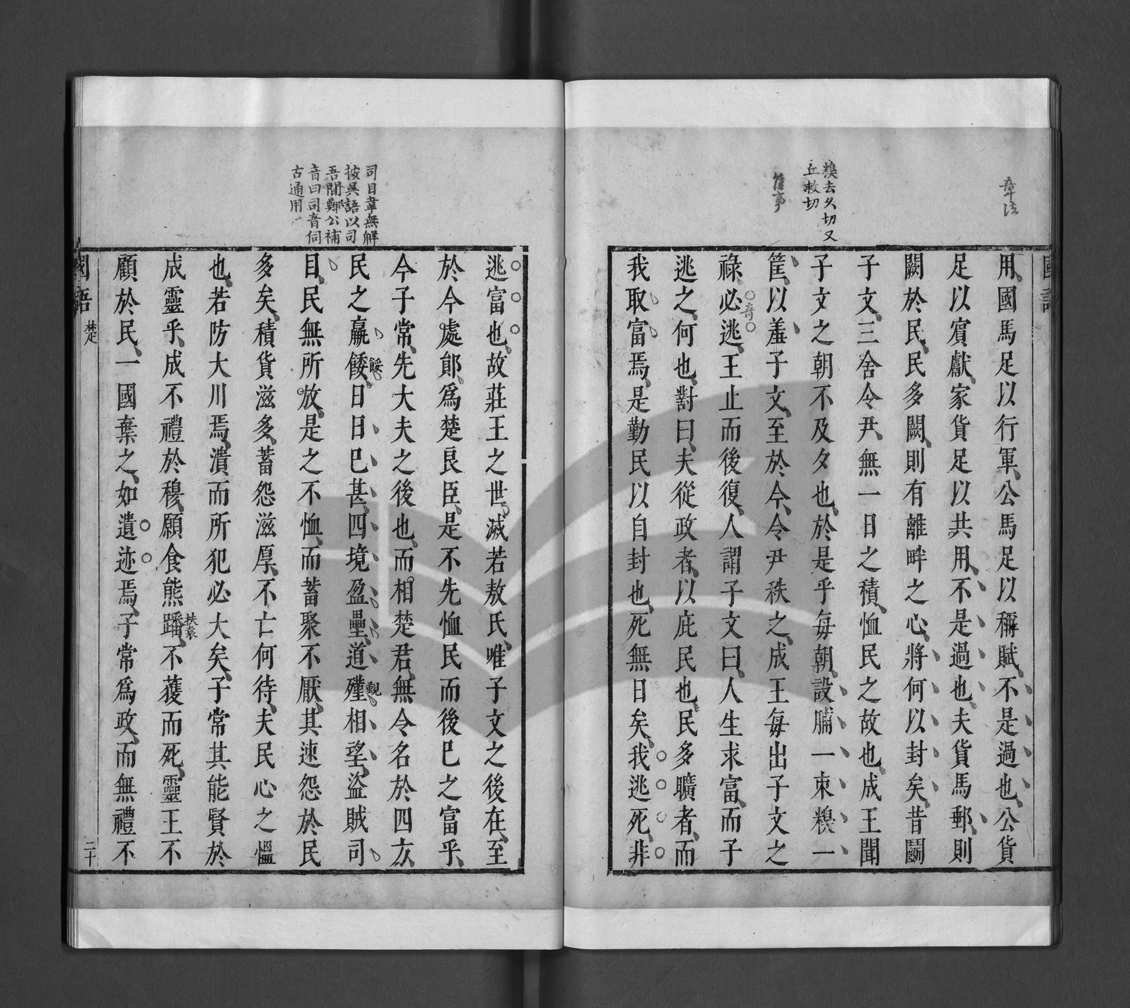 章法
糗去久切又
丘救切
叙事
用國馬足以行軍公馬足以稱賦不是過也公貨
足以賓獻家貨足以共用不是過也夫貨馬郵則
闕於民民多闕則有離畔之心將何以封矣昔鬭
子文三舍令尹無一日之積恤民之故也成王聞
子文之朝不及夕也於是乎每朝設脯一束糗一
筐以羞子文至於今令尹秩之成王每出子文之
祿必逃王止而後復人謂子文曰人生求富而子
奇
逃之何也對曰夫從政者以庇民也民多曠者而
我取富焉是勤民以自封也死無日矣我逃死非
司目韋無解
按吳語以司
吾閒鄭公補
音曰司音伺
古通用
逃富也故莊王之世滅若敖氏唯子文之後在至
於今處鄖爲楚良臣是不先恤民而後已之富乎
今子常先大夫之後也而相楚君無令名於四方
民之羸餒日日已甚四境盈壘道殣相望盜賊司
餒
覲
目民無所放是之不恤而蓄聚不厭其速怨於民
多矣積貨滋多蓄怨滋厚不亡何待夫民心之慍
也若防大川焉潰而所犯必大矣子常其能賢於
成靈乎成不禮於穆願食熊蹯不獲而死靈王不
扶袁
顧於民一國棄之如遺迹焉子常爲政而無禮不
國語
楚
二十